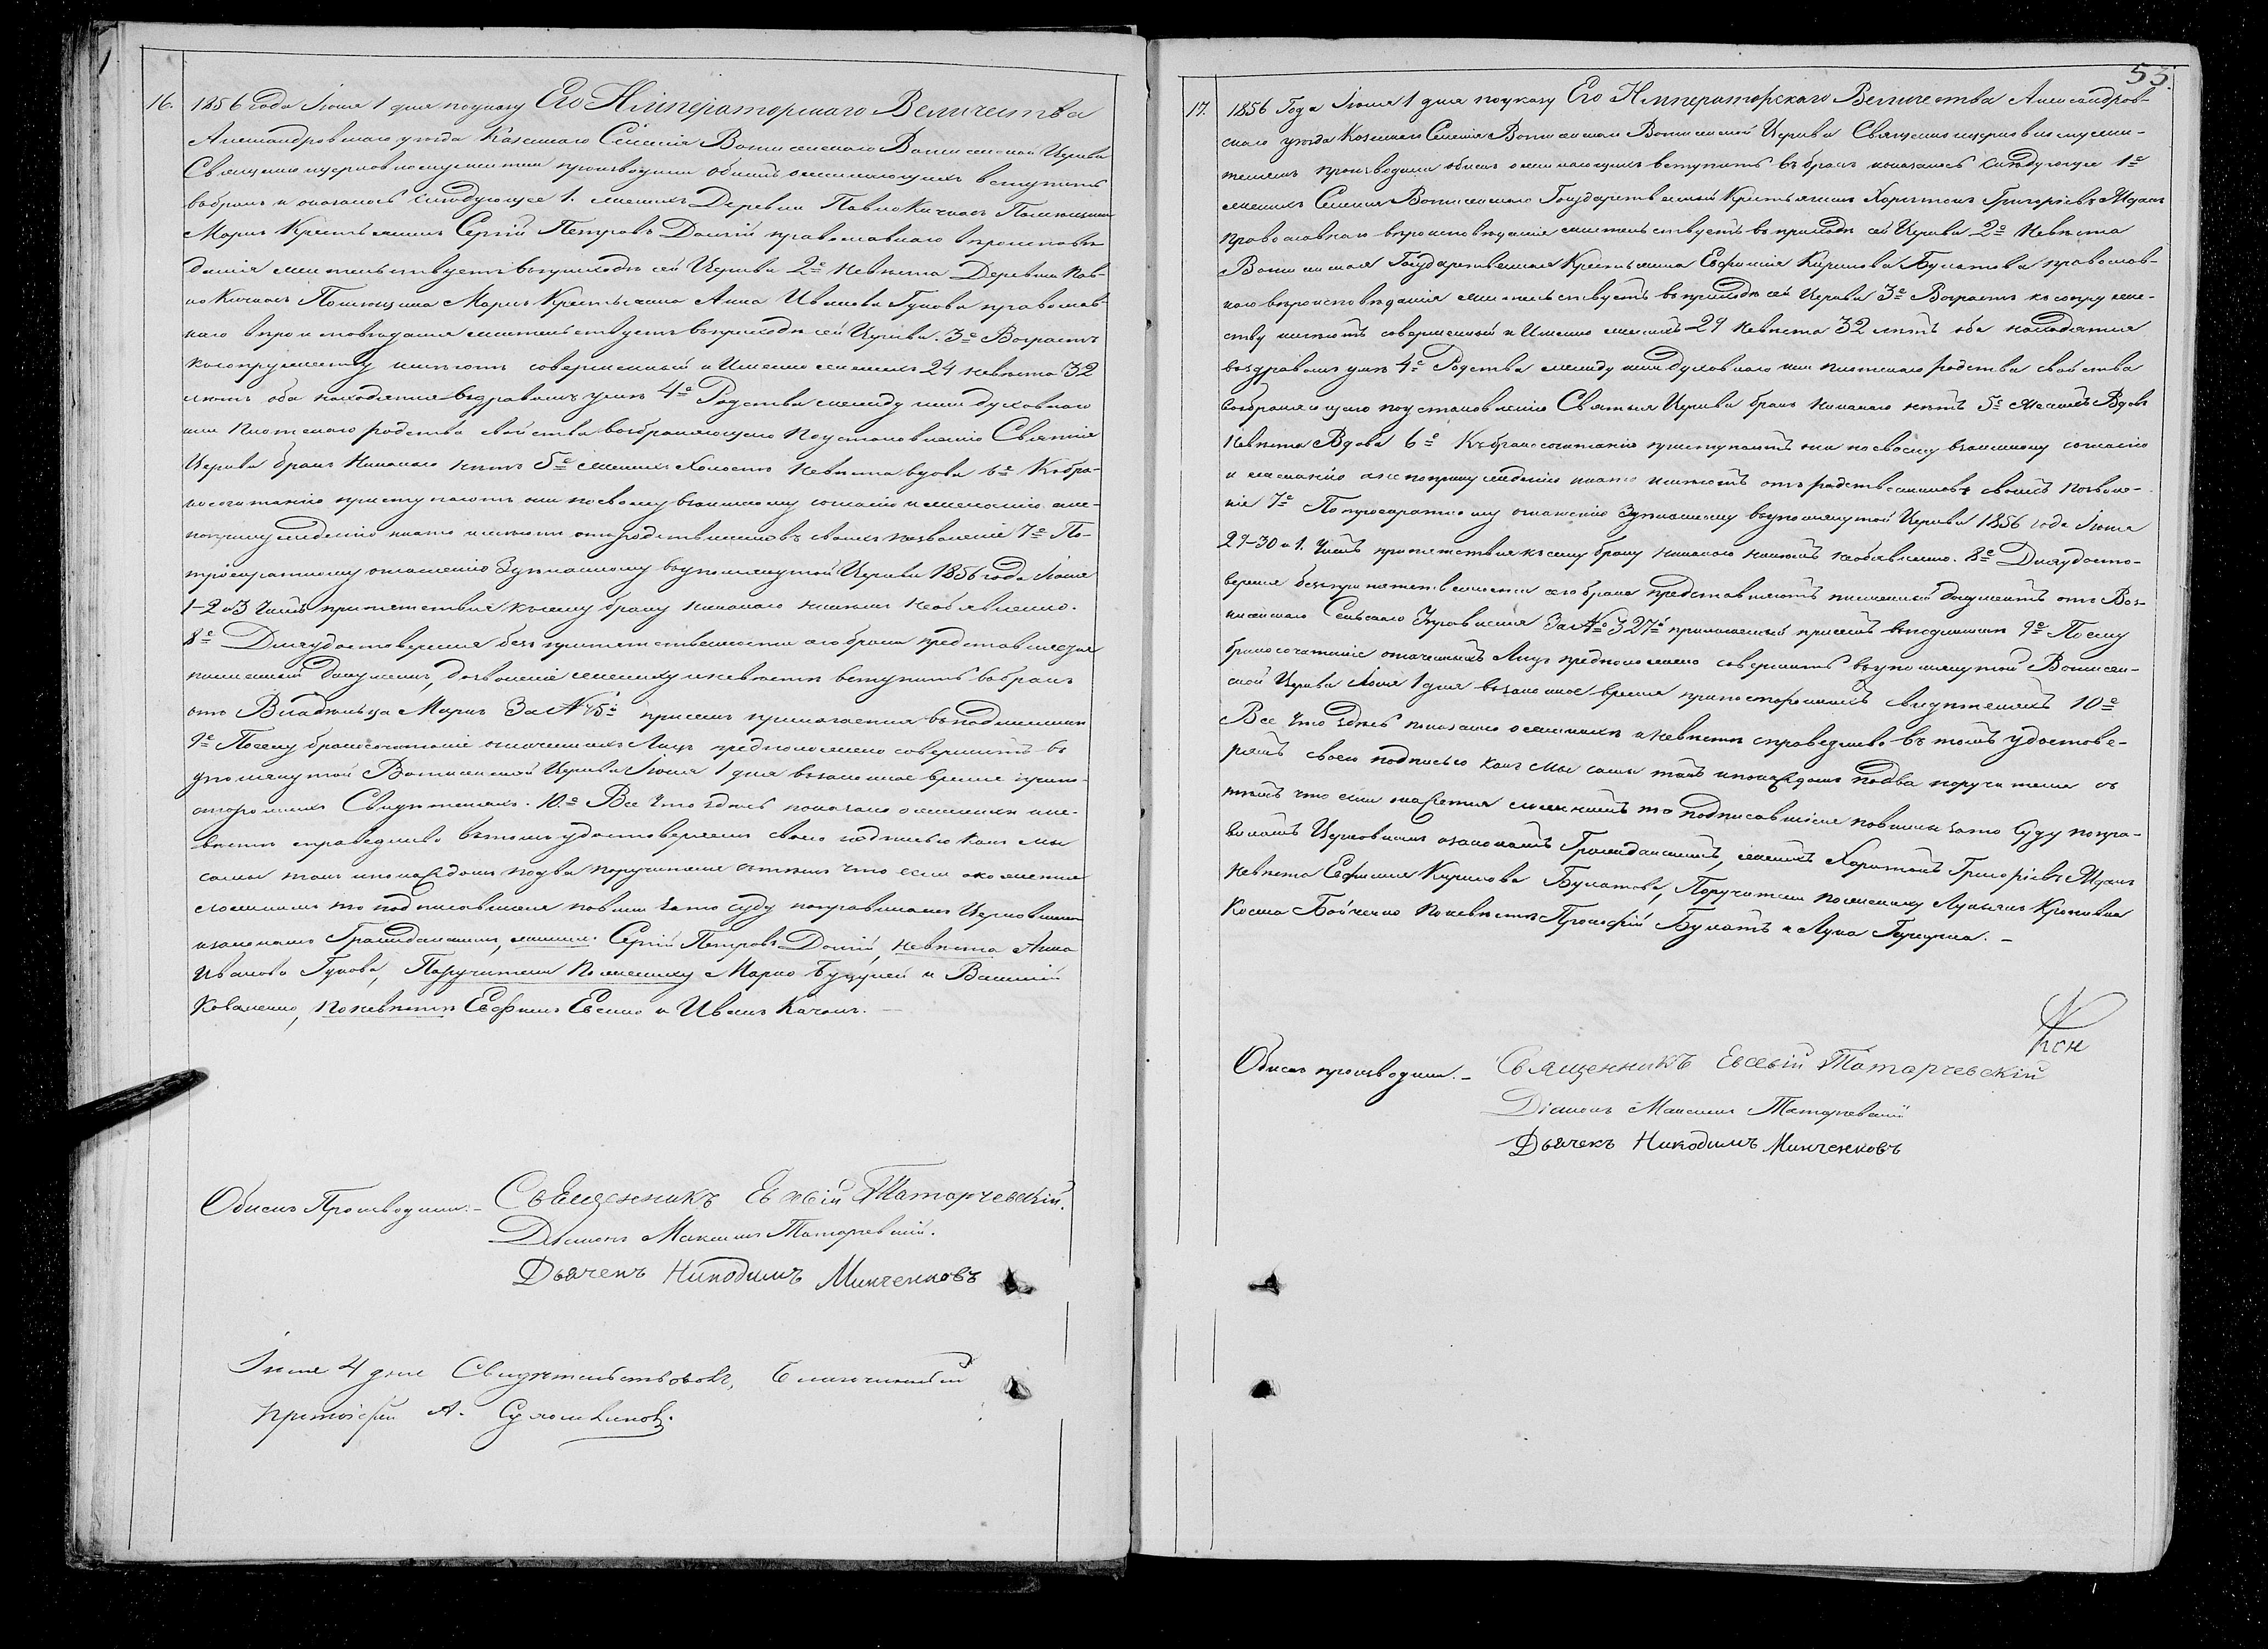 16. 1856 года Іюня 1 дня поуказу Его Императорскаго Величества
Александровскаго уѣзда Казеннаго Селенія Вознесенскаго Вознесенской Церкви
Священно церковнослужители производили обыскъ о желающихъ вступить
вбракъ и оказалось слѣдующее 1. женихъ Деревни Павло Кичкасъ Помѣщика
Маркъ Крестьянинъ Сергій Петровъ православнаго вѣроисповѣ
данія жительствуетъ въприходѣ сей Церкви 2е Невѣста Деревни Пав-
ло Кичкасъ Помѣщика Маркъ Крестьянка Анна Иванова Гукова православ-
наго вѣроисповѣданія жительствуетъ въприходѣ сей Церкви. 3е Возрастъ
ксопружеству имѣютъ совершенный и Именно женихъ 24 невѣста 32
лѣтъ оба находятся вздравомъ умѣ 4е Родства между ими духовнаго
или плотскаго родства свойства возбраняющаго поустановленію Святыя
Церкви бракъ никакаго нѣтъ 5е женихъ Холостъ Невѣста вдова 6е Кбра-
косочетанію приступаютъ они посвоему взаимному согласію и желанію ане-
попринужденію инато имѣютъ отъродственниковъ своихъ позволеніе 7е По-
троекратному оглашенію Зделанному въупомянутой Церкви 1856 года Іюня
1-2 и 3 Чиселъ препятствія ксему браку никакаго никѣмъ необъявленно.
8е Дляудостоверенія безпрепятственности сего брака представляется
писменный Документъ, дозволеніе жениху иневѣстѣ вступить вбракъ
отъ Владѣльца Маркъ За № 45 присемъ прилагается вподлинникѣ
9е Посему бракосочетаніе означенныхъ Лицъ предположено совершить въ
упомянутой Вознесенской Церкви Іюня 1 дня взаконное время припо-
стороннихъ Свидѣтеляхъ. 10.е Все что здѣсь показано оженихѣ ине-
вѣстѣ справедливо вътомъ удостоверяемъ своею подписью какъ мы
самы такъ ипокаждомъ подва поручителя стѣмъ что если окажется
ложнымъ то подписавшіеся повинны зато суду поправиламъ Церковнымъ
изаконамъ Гражданскимъ, женихъ Сергій Петровъ невѣста Анна
Иванова Гукова, Поручители Пожениху Марко и Василій
Коваленко, Поневѣстѣ Ефимъ и Иванъ Качанъ. —
Обыскъ Производили. – Священникъ Евсевій Татарчевскій.
Діаконъ Максимъ Татарчевскій.
Дьячекъ Никодимъ Минченковъ
Іюня 4 дня Свидѣтельствовалъ, Благочинный
протоіерей А.
53.
17. 1856 Года Іюня 1 дня поуказу Его Императорскаго Величества Александров-
скаго уѣзда Казеннаго Селенія Вознесенскаго Вознесенской Церкви Священно церковнослужи-
телямъ производили обыскъ о желающихъ вступить вбракъ иоказалось слѣдующее 1е
женихъ Селенія Вознесенскаго Государственный Крестьянинъ Харитонъ Григорьевъ
православнаго вѣроисповѣданія жительствуетъ въприходѣ сей Церкви 2е Невѣста
Вознесенская Государственная Крестьянка Евфимія Кирилова Булатова православ-
наго вѣроисповѣданія жительствуетъ въприходѣ сей Церкви 3е Возрастъ ксопруже-
ству имѣютъ совершенный и Именно женихъ 29 невѣста 32 лѣтъ оба находятся
вздравомъ умѣ 4е Родства между ими духовнаго или плотскаго родства свойства
возбраняющаго поустановленію Святыя Церкви бракъ никакаго нѣтъ 5е женихъ Вдовъ
Невѣста Вдова 6е Къбракосочетанію приступаютъ они посвоему взаимному согласію
и желанію анепопринужденію инато имѣютъ отъродственниковъ своихъ позволе-
ніе 7е Потроекратному оглашенію Зделанному въупомянутой Церкви 1856 года Іюня
29-30 и 1. Чиселъ препятствія ксему браку никакаго никѣмъ необъявленно. 8е Дляудосто-
веренія безпрепятственности сего брака представляетъ писменный документъ отъ Воз-
несенскаго Сельскаго Управленія За № 327 приложенный присемъ вподлинникѣ 9е Посему
бракосочетаніе означенныхъ Лицъ предположено совершить въупомянутой Вознесен-
ской Церкви Іюня 1 дня взаконное время припостороннихъ свидѣтеляхъ 10е
Все Что здѣсь показано оженихѣ иневѣстѣ справедливо въ томъ удостове-
ряемъ своею подписью какъ мы самы такъ ипокаждомъ подва поручителя съ
тѣмъ что если окажется ложнымъ то подписавшіеся повинны зато Суду попра-
виламъ Церковнымъ изаконамъ Гражданскимъ, женихъ Харитонъ Григорьевъ
Невѣста Евфимія Кирилова Булатова, Поручители пожениху Лукьянъ
Косма Бойченко поневѣстѣ Прокофій Булатъ и Лука –
Обыскъ производили. – Священникъ Евсевій Татарчевскій
Діаконъ Максимъ Татарчевскій
Дьячекъ Никодимъ Минченковъ